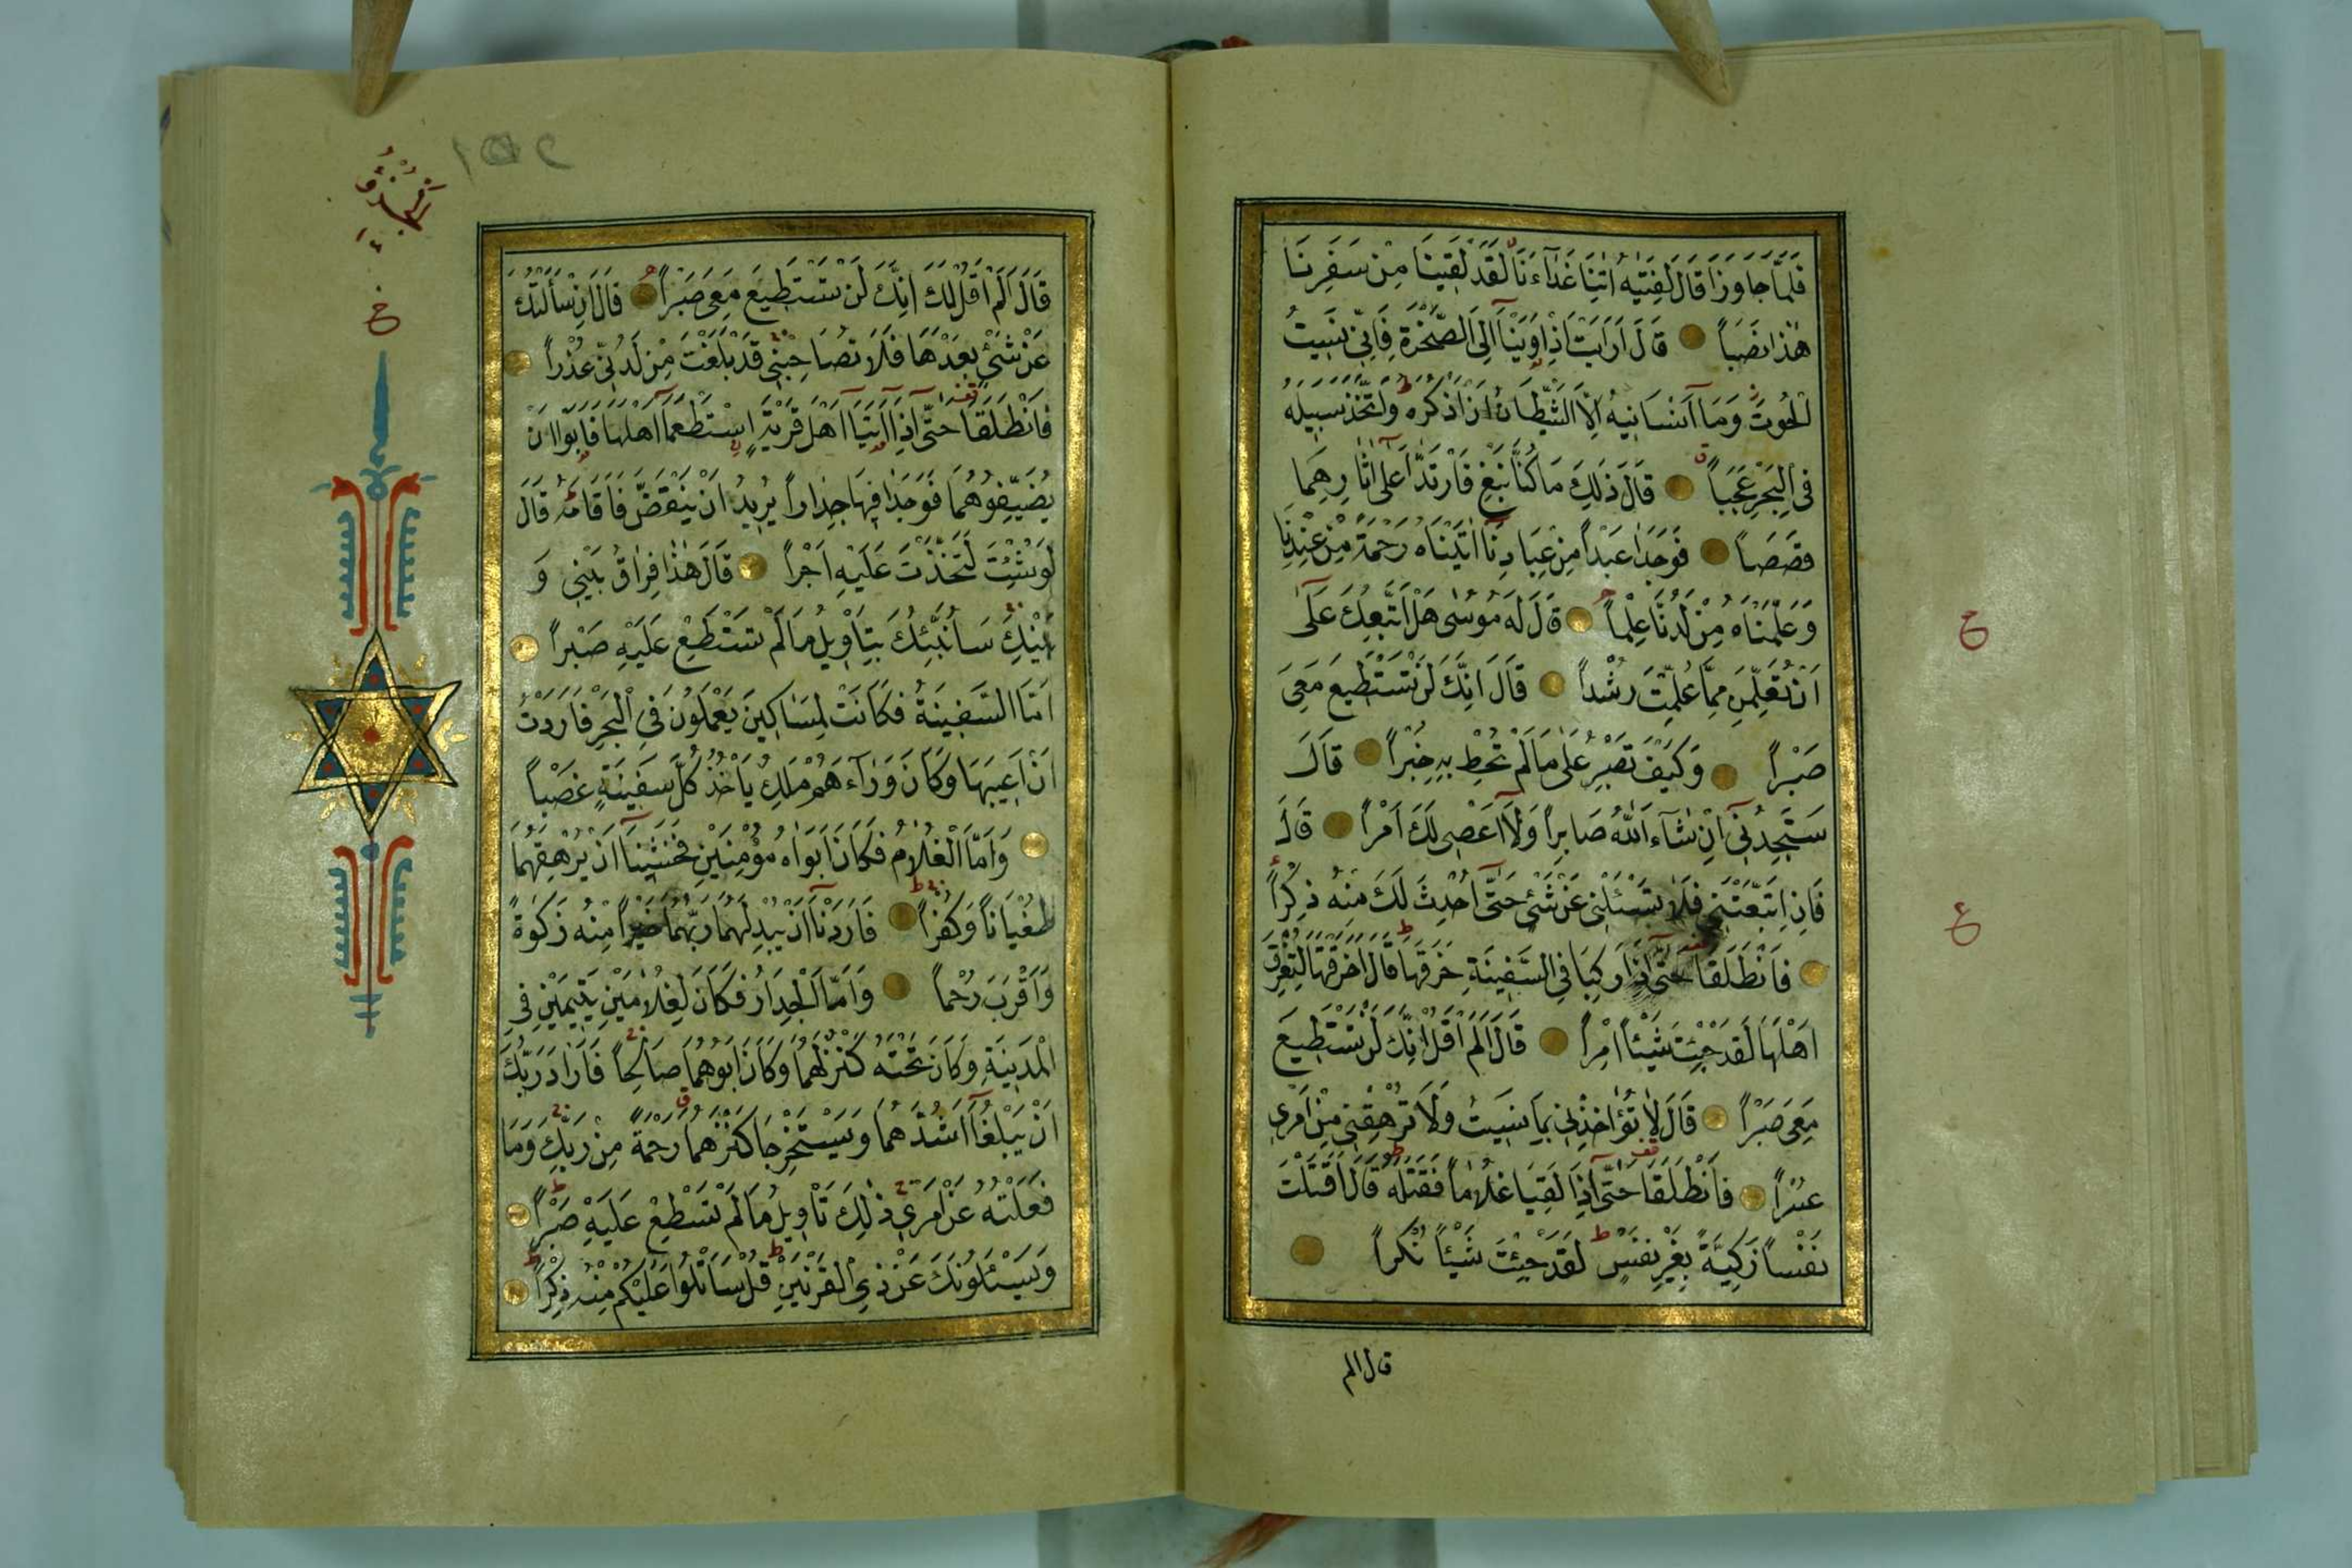 فَلَمَّا جَاوَزَا قَالَ لِفَتٰيهُ اٰتِنَا غَدَاۤءَنَا لَقَدْ لَقِينَا مِنْ سَفَرِنَا
هٰذَا نَصَبًا قَالَ اَرَاَيْتَ اِذْ اَوَيْنَاۤ اِلَى الصَّخْرَةِ فَاِنِّى نَسِيتُ
الْحُوتَ وَمَاۤ اَنْسَانِيهُ اِلَّا الشَّيْطَانُ اَنْ اَذْكُرَهُ وَاتَّخَذَ سَبِيلَهُ
فِى الْبَحْرِ عَجَبًا قَالَ ذٰلِكَ مَا كُنَّا نَبْغِ فَارْتَدَّا عَلٰۤى اٰثَارِهِمَا
قَصَصًا فَوَجَدَا عَبْدًا مِنْ عِبَادِنَاۤ اٰتَيْنَاهُ رَحْمَةً مِنْ عِنْدِنَا
وَعَلَّمْنَاهُ مِنْ لَدُنَّا عِلْمًا قَالَ لَهُ مُوسٰى هَلْ اَتَّبِعُكَ عَلٰۤى
اَنْ تُعَلِّمَنِ مِمَّا عُلِّمْتَ رُشْدًا قَالَ اِنَّكَ لَنْ تَسْتَطِيعَ مَعِىَ
صَبْرًا وَكَيْفَ تَصْبِرُ عَلٰى مَا لَمْ تُحِطْ بِهِ خُبْرًا قَالَ
سَتَجِدُنِىۤ اِنْ شَاۤءَ اللّٰهُ صَابِرًا وَلَاۤ اَعْصِى لَكَ اَمْرًا قَالَ
فَاِنِ اتَّبَعْتَنِى فَلَا تَسْـَٔلْنِى عَنْ شَىْءٍ حَتّٰۤى اُحْدِثَ لَكَ مِنْهُ ذِكْرًا
فَانْطَلَقَا حَتّٰۤى اِذَا رَكِبَا فِى السَّفِينَةِ خَرَقَهَا قَالَ اَخَرَقْتَهَا لِتُغْرِقَ
اَهْلَهَا لَقَدْ جِئْتَ شَيْئًا اِمْرًا قَالَ اَلَمْ اَقُلْ اِنَّكَ لَنْ تَسْتَطِيعَ
مَعِىَ صَبْرًا قَالَ لَا تُؤَاخِذْنِى بِمَا نَسِيتُ وَلَا تُرْهِقْنِى مِنْ اَمْرِى
عُسْرًا فَانْطَلَقَا حَتّٰۤى اِذَا لَقِيَا غُلَامًا فَقَتَلَهُ قَالَ اَقَتَلْتَ
نَفْسًا زَكِيَّةً بِغَيْرِ نَفْسٍ لَقَدْ جِئْتَ شَيْئًا نُكْرًا
قال الم
ع
ع
الجزؤ
ع
قَالَ اَلَمْ اَقُلْ لَكَ اِنَّكَ لَنْ تَسْتَطِيعَ مَعِىَ صَبْرًا قَالَ اِنْ سَاَلْتُكَ
عَنْ شَىْءٍ بَعْدَهَا فَلَا تُصَاحِبْنِى قَدْ بَلَغْتَ مِنْ لَدُنِّى عُذْرًا
فَانْطَلَقَا حَتّٰۤى اِذَاۤ اَتَيَاۤ اَهْلَ قَرْيَةٍ اسْتَطْعَمَاۤ اَهْلَهَا فَاَبَوْا اَنْ
يُضَيِّفُوهُمَا فَوَجَدَا فِيهَا جِدَارًا يُرِيدُ اَنْ يَنْقَضَّ فَاَقَامَهُ قَالَ
لَوْ شِئْتَ لَتَّخَذْتَ عَلَيْهِ اَجْرًا قَالَ هٰذَا فِرَاقُ بَيْنِى وَ
بَيْنِكَ سَاُنَبِّئُكَ بِتَاْوِيلِ مَا لَمْ تَسْتَطِعْ عَلَيْهِ صَبْرًا
اَمَّا السَّفِينَةُ فَكَانَتْ لِمَسَاكِينَ يَعْمَلُونَ فِى الْبَحْرِ فَاَرَدْتُ
اَنْ اَعِيبَهَا وَكَانَ وَرَاۤءَهُمْ مَلِكٌ يَاْخُذُ كُلَّ سَفِينَةٍ غَصْبًا
وَاَمَّا الْغُلَامُ فَكَانَ اَبَوَاهُ مُؤْمِنَيْنِ فَخَشِينَاۤ اَنْ يُرْهِقَهُمَا
طُغْيَانًا وَكُفْرًا فَاَرَدْنَاۤ اَنْ يُبْدِلَهُمَا رَبُّهُمَا خَيْرًا مِنْهُ زَكٰوةً
وَاَقْرَبَ رُحْمًا وَاَمَّا الْجِدَارُ فَكَانَ لِغُلَامَيْنِ يَتِيمَيْنِ فِى
الْمَدِينَةِ وَكَانَ تَحْتَهُ كَنْزٌ لَهُمَا وَكَانَ اَبُوهُمَا صَالِحًا فَاَرَادَ رَبُّكَ
اَنْ يَبْلُغَاۤ اَشُدَّهُمَا وَيَسْتَخْرِجَا كَنْزَهُمَا رَحْمَةً مِنْ رَبِّكَ وَمَا
فَعَلْتُهُ عَنْ اَمْرِى ذٰلِكَ تَاْوِيلُ مَا لَمْ تَسْطِعْ عَلَيْهِ صَبْرًا
وَيَسْـَٔلُونَكَ عَنْ ذِى الْقَرْنَيْنِ قُلْ سَاَتْلُوا عَلَيْكُمْ مِنْهُ ذِكْرًا